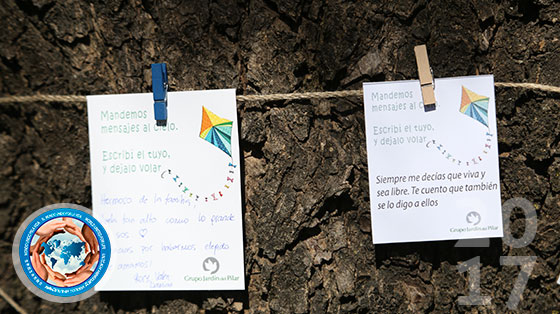 Mandemos
mensajes al cielo.
Escribí el tuyo,
y dejalo volar
Hermoso de la familia
vola tan alto como lo grande
sos
amamos!
Grupo Jardin del Pilar
Mandemos
mensajes al cielo.
Escribí el tuyo,
y dejalo volar
Siempre me decías que viva y
sea libre. Te cuento que también
se lo digo a ellos
Grupo Jardin del Pilar
20
17